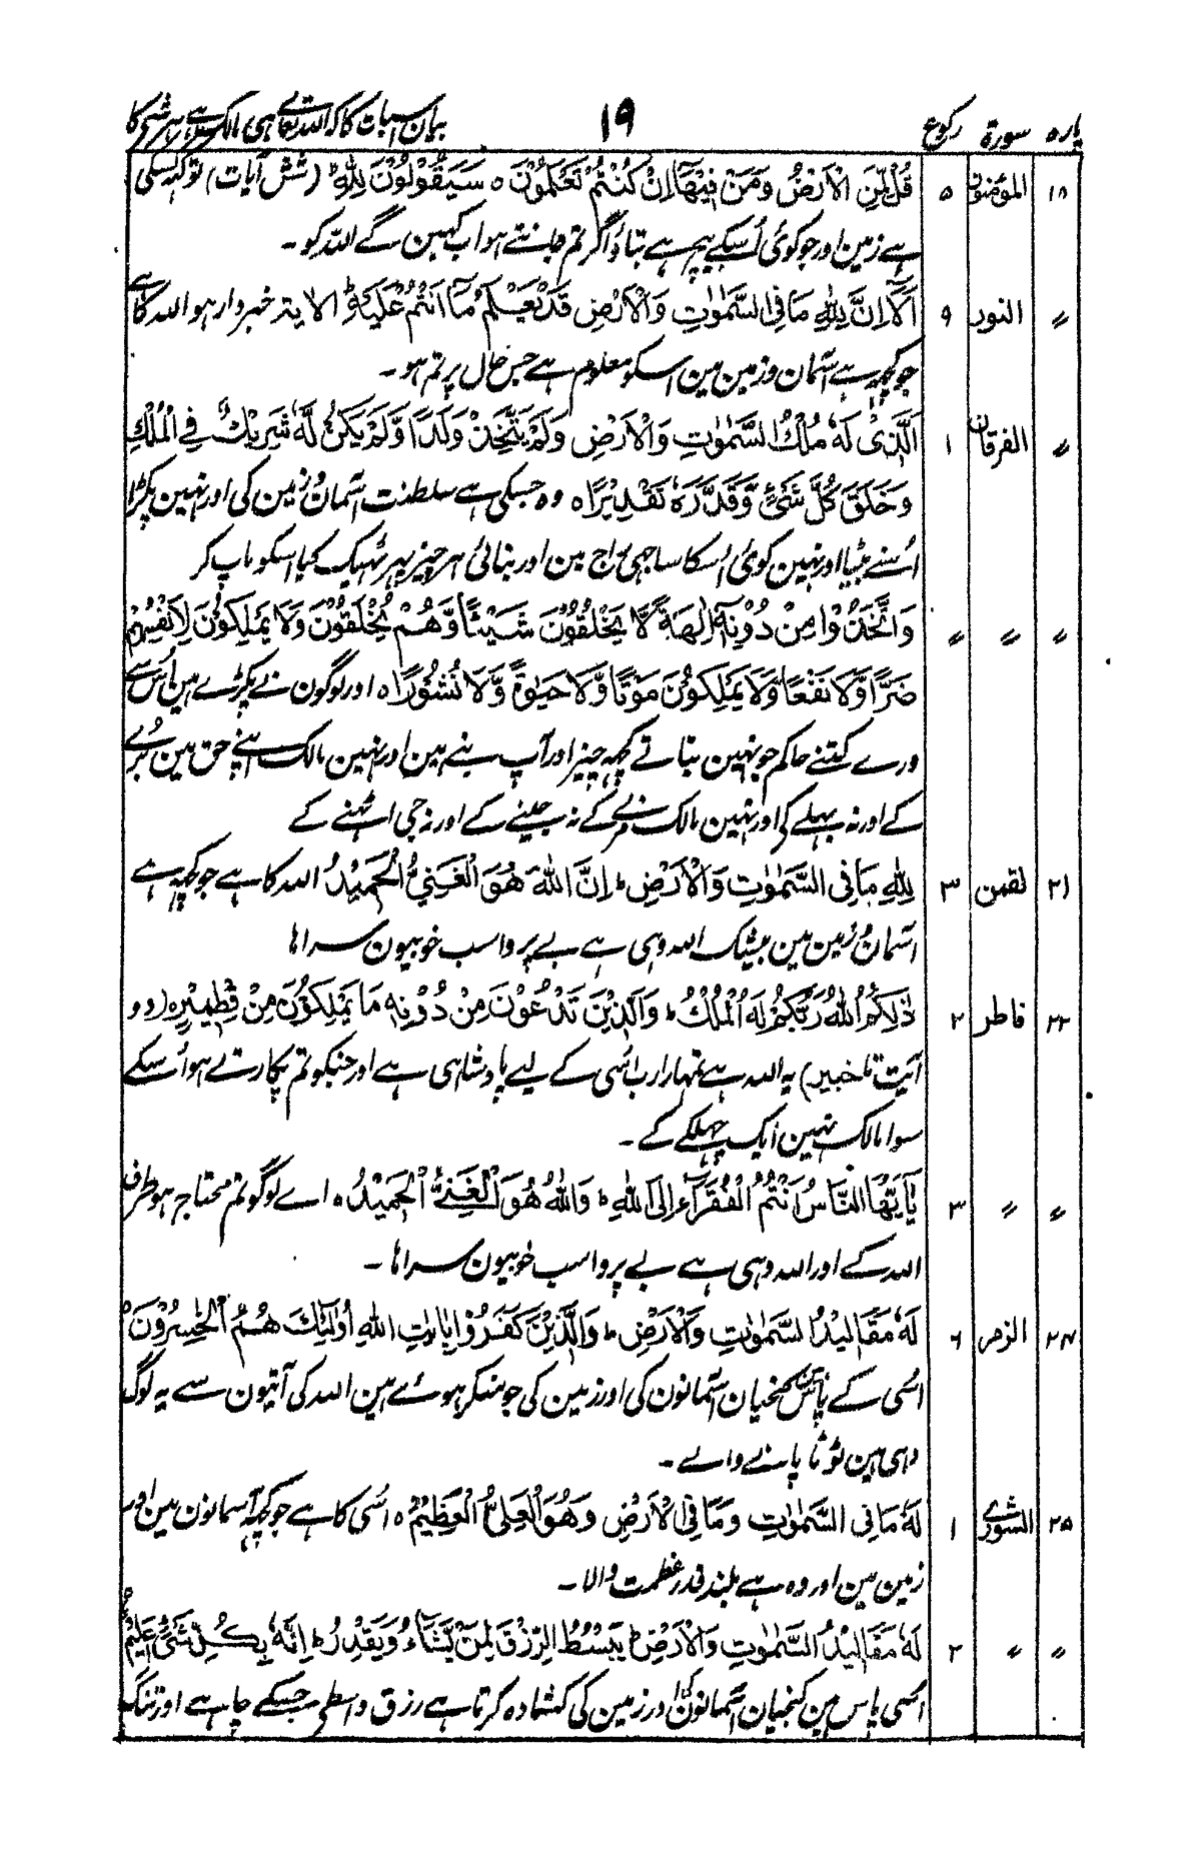 پارہ سورۃ رکوع ۱۹ بیان اسبات کا کہ اللہ تعالے ہی مالک ہے ہر شی کا
۱۸ المؤمنون ۵ قُلْ لِّمَنِ الْاَرْضُ وَمَنْ فِیْهَاۤ اِنْ كُنْتُمْ تَعْلَمُوْنَ ہ سَیَقُوْلُوْنَ لِلّٰهِ ؕ (شش آیات) تو کہہ کسکی
ہے زمین اور جو کوئی اُسکے بیچ ہے بتاؤ اگر تم جانتے ہو اب کہین گے اللہ کو۔
〃 النور ۹ اَلَاۤ اِنَّ لِلّٰهِ مَا فِی السَّمٰوٰتِ وَالْاَرْضِ قَدْ یَعْلَمُ مَاۤ اَنْتُمْ عَلَیْهِ ؕ الایۃ خبردار ہو اللہ کا ہے
جو کچھ ہے آسمان و زمین مین اسکو معلوم ہے جس حال پر تم ہو۔
〃 الفرقان ۱ الَّذِیْ لَهٗ مُلْكُ السَّمٰوٰتِ وَالْاَرْضِ وَلَمْ یَتَّخِذْ وَلَدًا وَّلَمْ یَكُنْ لَّهٗ شَرِیْكٌ فِی الْمُلْكِ
وَخَلَقَ كُلَّ شَیْءٍ وَّقَدَّرَهٗ تَقْدِیْرًا ہ وہ جسکی ہے سلطنت آسمان و زمین کی اور نہین پکڑا
اُسنے بیٹا اور نہین کوئی اُسکا ساجھی راج مین اور بنائی ہر چیز پھر ٹھیک کیا اسکو ماپ کر
〃 〃 〃 وَاتَّخَذُوْا مِنْ دُوْنِهٖۤ اٰلِهَةً لَّا یَخْلُقُوْنَ شَیْئًا وَّهُمْ یُخْلَقُوْنَ وَلَا یَمْلِكُوْنَ لِاَنْفُسِهِمْ
ضَرًّا وَّلَا نَفْعًا وَّلَا یَمْلِكُوْنَ مَوْتًا وَّلَا حَیٰوةً وَّلَا نُشُوْرًا ہ اور لوگون نے پکڑے ہین اُس سے
ورے کتنے حاکم جو نہین بناتے کچھ چیز اور آپ بنے ہین اور نہین مالک اپنے حق مین بُرے
کے اور نہ بھلے کے اور نہین مالک مرنے کے نہ جینے کے اور نہ جی اٹھنے کے
۲۱ لقمن ۳ لِلّٰهِ مَا فِی السَّمٰوٰتِ وَالْاَرْضِ ؕ اِنَّ اللّٰهَ هُوَ الْغَنِیُّ الْحَمِیْدُ اللہ کا ہے جو کچھ ہے
آسمان و زمین مین بیشک اللہ وہی ہے بے پروا سب خوبیون سراہا
۲۲ فاطر ۲ ذٰلِكُمُ اللّٰهُ رَبُّكُمْ لَهُ الْمُلْكُ ؕ وَالَّذِیْنَ تَدْعُوْنَ مِنْ دُوْنِهٖ مَا یَمْلِكُوْنَ مِنْ قِطْمِیْرٍ ہ (دو
آیت تا خبیر) یہ اللہ ہے تمہارا رب اُسی کے لیے پادشاہی ہے اور جنکو تم پکارتے ہو اُسکے
سوا مالک نہین ایک چھلکے کے۔
〃 〃 ۳ یٰۤاَیُّهَا النَّاسُ اَنْتُمُ الْفُقَرَآءُ اِلَی اللّٰهِ ؕ وَاللّٰهُ هُوَ الْغَنِیُّ الْحَمِیْدُ ہ اے لوگو تم محتاج ہو طرف
اللہ کے اور اللہ وہی ہے بے پروا سب خوبیون سراہا۔
۲۴ الزمر ۶ لَهٗ مَقَالِیْدُ السَّمٰوٰتِ وَالْاَرْضِ ؕ وَالَّذِیْنَ كَفَرُوْا بِاٰیٰتِ اللّٰهِ اُولٰٓئِكَ هُمُ الْخٰسِرُوْنَ
اُسی کے پاس ہین کنجیان آسمانون کی اور زمین کی جو منکر ہوئے ہین اللہ کی آیتون سے یہ لوگ
وہی ہین ٹوٹا پانے والے۔
۲۵ الشورے ۱ لَهٗ مَا فِی السَّمٰوٰتِ وَمَا فِی الْاَرْضِ وَهُوَ الْعَلِیُّ الْعَظِیْمُ ہ اُسی کا ہے جو کچھ آسمانون مین اور
زمین مین اور وہ ہے بلند قدر عظمت والا۔
〃 〃 ۲ لَهٗ مَقَالِیْدُ السَّمٰوٰتِ وَالْاَرْضِ ؕ یَبْسُطُ الرِّزْقَ لِمَنْ یَّشَآءُ وَیَقْدِرُ ؕ اِنَّهٗ بِكُلِّ شَیْءٍ عَلِیْمٌ
اُسی پاس ہین کنجیان آسمانون اور زمین کی کشادہ کرتا ہے رزق واسطے جسکے چاہے اور تنگ